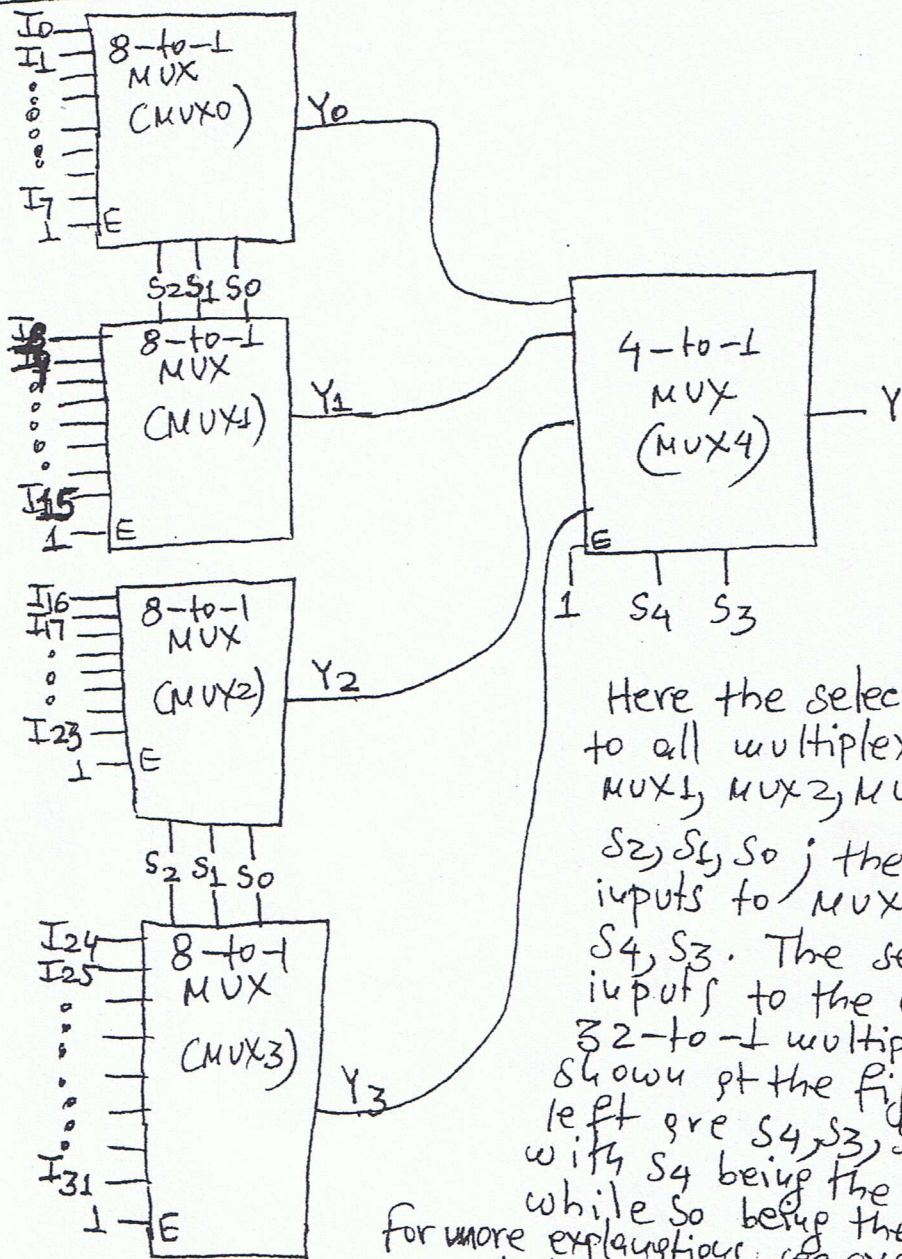 I0
I1
I7
1 E
8-to-1
MUX
(MUX0)
Y0
S2 S1 S0
I15
1 E
8-to-1
MUX
(MUX1)
Y1
I16
I17
I23
1 E
8-to-1
MUX
(MUX2)
Y2
S2 S1 S0
I24
I25
I31
1 E
8-to-1
MUX
(MUX3)
Y3
4-to-1
MUX
(MUX4)
E
Y
1 S4 S3
Here the selec
to all multiplex
MUX1, MUX2, MU
S2, S1, S0; the
inputs to MUX
S4, S3. The se
inputs to the
32-to-1 multip
shown at the fi
left are S4, S3,
with S4 being the
while S0 being the
for more explanations,